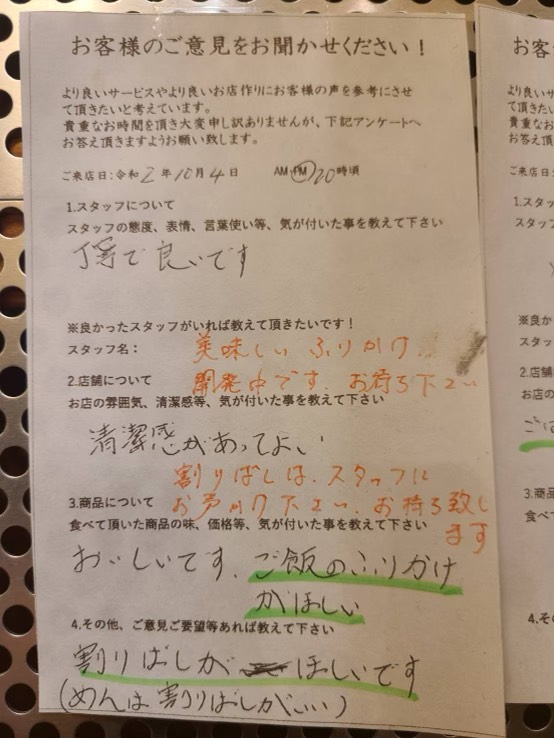 お客様のご意見をお聞かせください！
より良いサービスやより良いお店作りにお客様の声を参考にさせ
て頂きたいと考えています。
貴重なお時間を頂き大変申し訳ありませんが、下記アンケートへ
お答え頂きますようお願い致します。
ご来店日:令和2年10月4日 AM・PM 20時頃
1.スタッフについて
スタッフの態度、表情、言葉使い等、気が付いた事を教えて下さい
丁寧で良いです
※良かったスタッフがいれば教えて頂きたいです！
スタッフ名：
美味しいふりかけ
開発中です。お待ち下さい
2.店舗について
お店の雰囲気、清潔感等、気が付いた事を教えて下さい
清潔感があってよい
割りばしは、スタッフに
お声がけ下さい。お持ち致し
ます
3.商品について
食べて頂いた商品の味、価格等、気が付いた事を教えて下さい
おいしいです、ご飯のふりかけ
がほしい
4.その他、ご意見ご要望等あれば教えて下さい
割りばしがほしいです
(めんは割りばしがいい)
お客
より良いサ
て頂きたい
貴重なお
お答え頂
ご来店日
1.スタッ
スタッフ
※良か
スタッ
2.店舗
お店の
ごは
3.商品
食べて
4.その